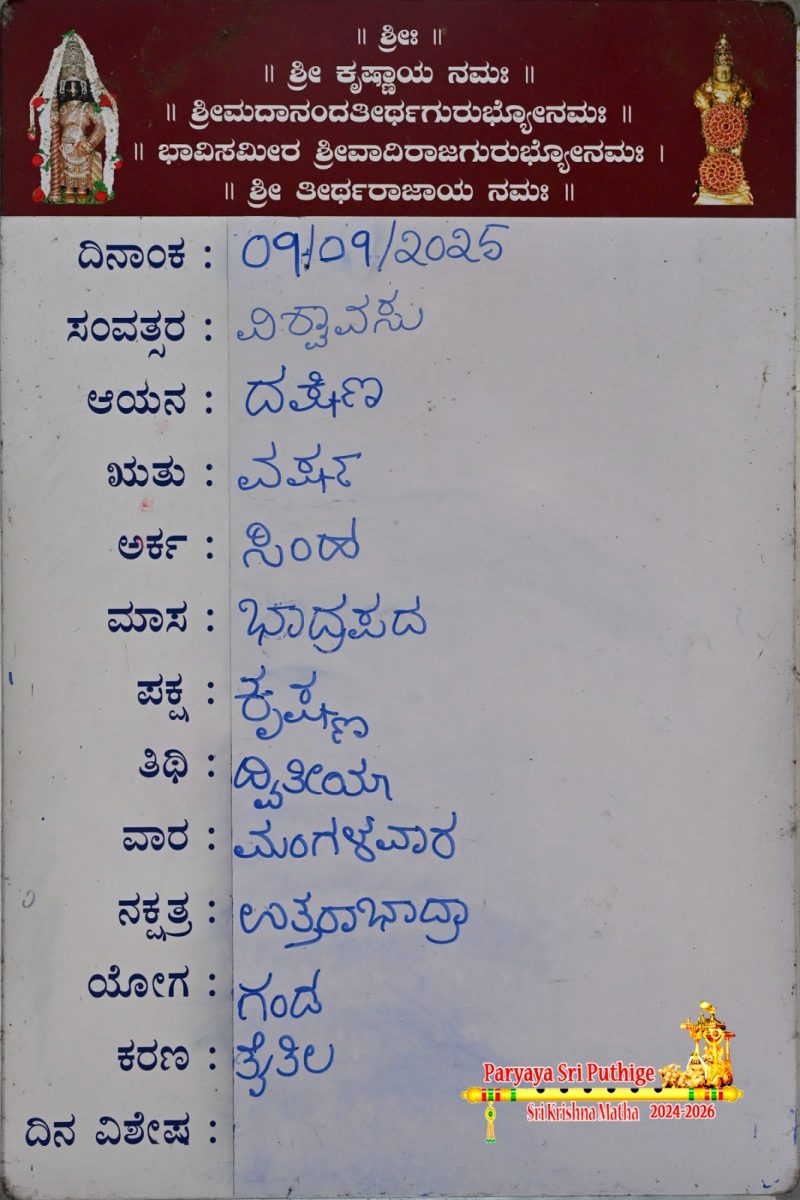 ॥ ಶ್ರೀಃ ॥
॥ ಶ್ರೀ ಕೃಷ್ಣಾಯ ನಮಃ ॥
॥ ಶ್ರೀಮದಾನಂದತೀರ್ಥಗುರುಭ್ಯೋನಮಃ ॥
॥ ಭಾವಿಸಮೀರ ಶ್ರೀವಾದಿರಾಜಗುರುಭ್ಯೋನಮಃ ।
॥ ಶ್ರೀ ತೀರ್ಥರಾಜಾಯ ನಮಃ ॥
ದಿನಾಂಕ : 09/09/2025
ಸಂವತ್ಸರ : ವಿಶ್ವಾವಸು
ಆಯನ : ದಕ್ಷಿಣ
ಋತು : ವರ್ಷ
ಅರ್ಕ : ಸಿಂಹ
ಮಾಸ : ಭಾದ್ರಪದ
ಪಕ್ಷ : ಕೃಷ್ಣ
ತಿಥಿ : ದ್ವಿತೀಯಾ
ವಾರ : ಮಂಗಳವಾರ
ನಕ್ಷತ್ರ : ಉತ್ತರಾಭಾದ್ರಾ
ಯೋಗ : ಗಂಡ
ಕರಣ : ತೈತಿಲ
ದಿನ ವಿಶೇಷ :
Paryaya Sri Puthige
Sri Krishna Matha 2024-2026